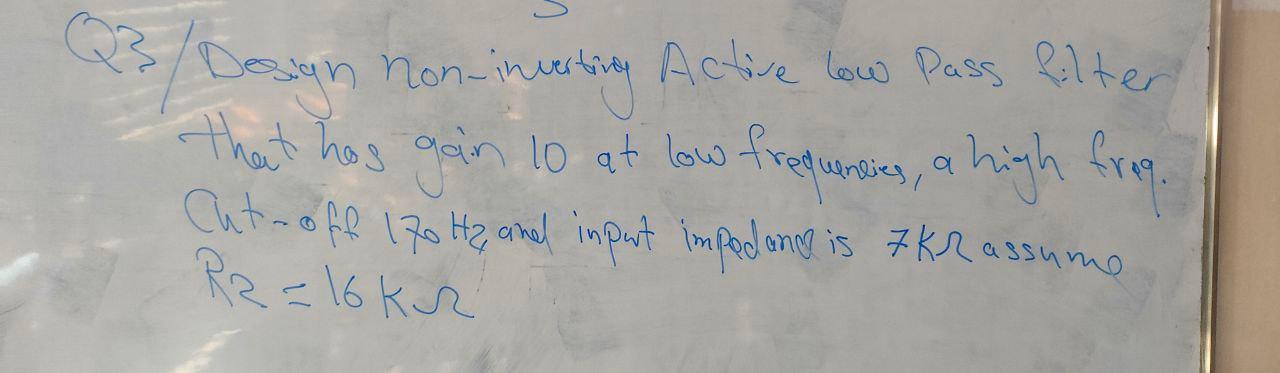 Q3/ Design non-inverting Active low Pass filter
that has gain 10 at low frequencies, a high freq.
Cut-off 170 Hz and input impedance is 7KΩ assume
R2 = 16 KΩ